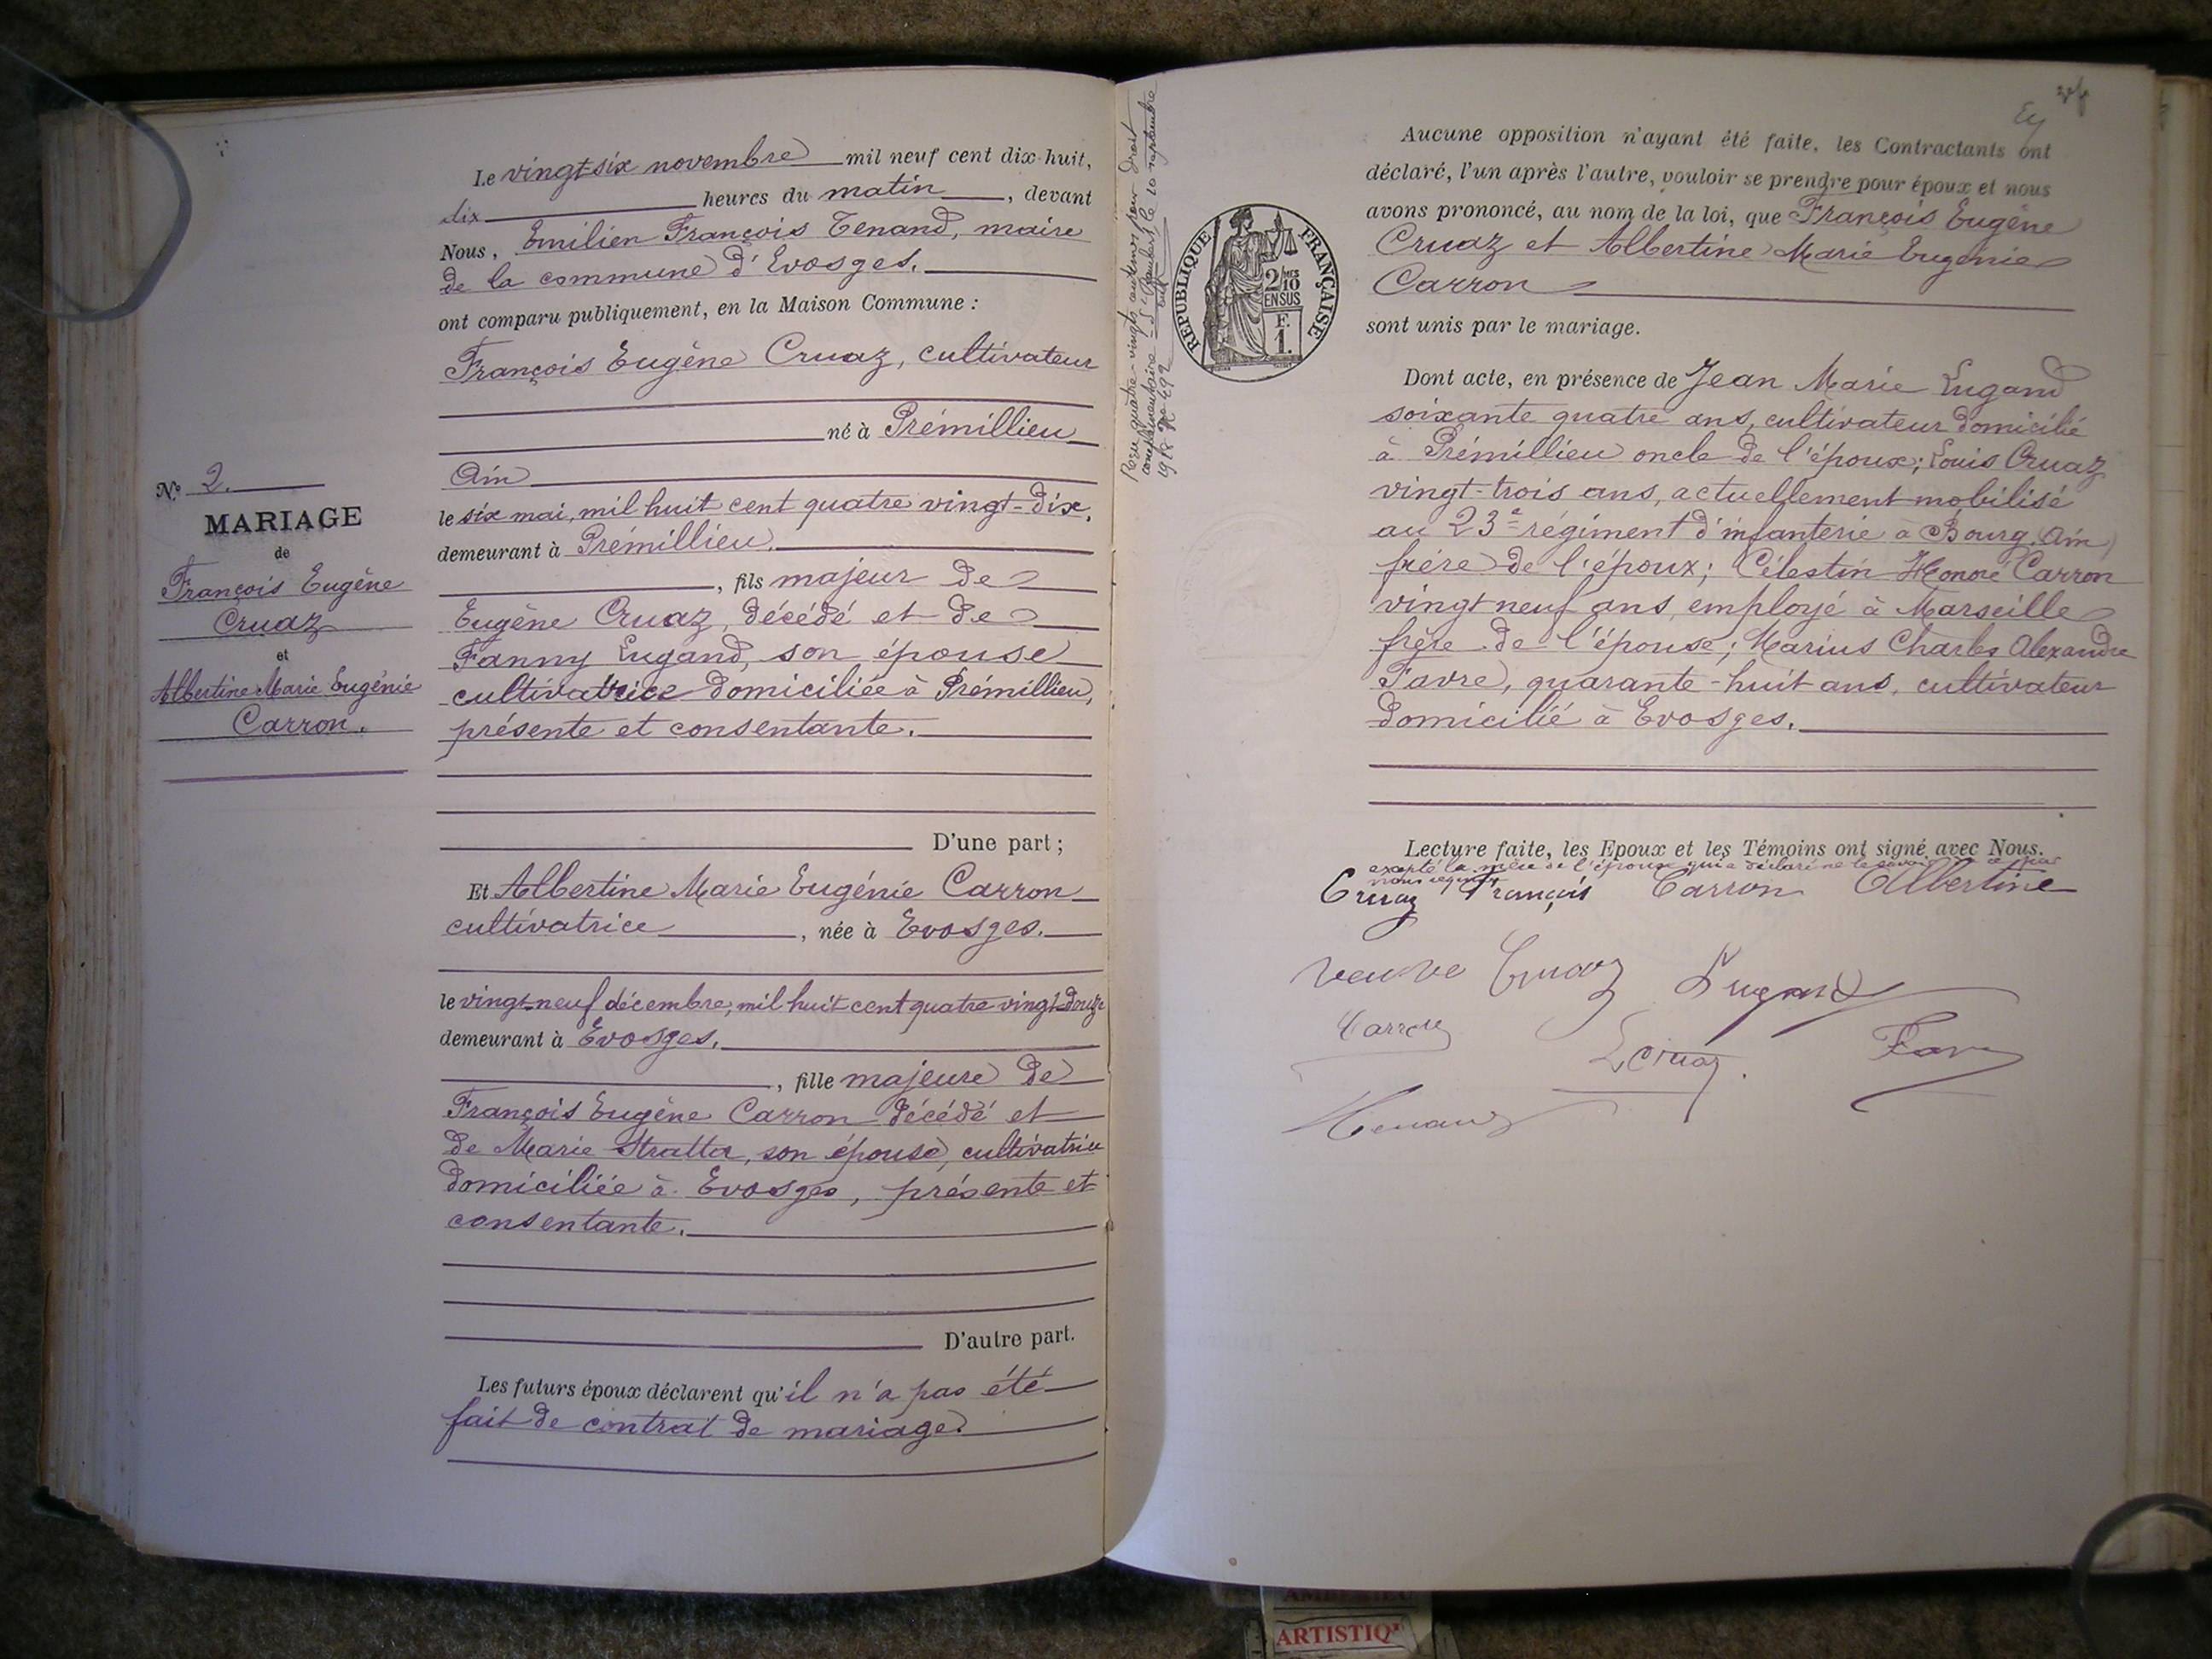 Le vingt-six novembre mil neuf cent dix-huit,
dix heures du matin, devant
Nous, Emilien François Tenand, maire
de la commune d'Evosges.
ont comparu publiquement, en la Maison Commune :
François Eugène Cruaz, cultivateur
né à Prémillieu
Ain
le six mai, mil huit cent quatre vingt-dix,
demeurant à Prémillieu.
, fils majeur de
Eugène Cruaz, décédé et de
Fanny Lugand, son épouse
cultivatrice domiciliée à Prémillieu,
présente et consentante.
D'une part ;
Et Albertine Marie Eugénie Carron
cultivatrice, née à Evosges.
le vingt-neuf décembre, mil huit cent quatre vingt-douze
demeurant à Evosges.
, fille majeure de
François Eugène Carron décédé et
de Marie Stratta, son épouse, cultivatrice
domiciliée à Evosges, présente et
consentante.
D'autre part.
Les futurs époux déclarent qu'il n'a pas été
fait de contrat de mariage.
N° 2.
MARIAGE
de
François Eugène
Cruaz
et
Albertine Marie Eugénie
Carron.
Reçu quatre-vingts centimes pour droit
complémentaire - St Rambert, le 10 septembre
REPUBLIQUE FRANÇAISE
2/10
EN SUS
F.
1.
Aucune opposition n'ayant été faite, les Contractants ont
déclaré, l'un après l'autre, vouloir se prendre pour époux et nous
avons prononcé, au nom de la loi, que François Eugène
Cruaz et Albertine Marie Eugénie
Carron
sont unis par le mariage.
Dont acte, en présence de Jean Marie Lugand
soixante quatre ans, cultivateur domicilié
à Prémillieu oncle de l'époux; Louis Cruaz
vingt-trois ans, actuellement mobilisé
au 23e régiment d'infanterie à Bourg, Ain,
frère de l'époux; Célestin Honoré Carron
vingt neuf ans, employé à Marseille
frère de l'épouse; Marius Charles Alexandre
Favre, quarante-huit ans, cultivateur
domicilié à Evosges.
Lecture faite, les Epoux et les Témoins ont signé avec Nous.
excepté la mère de l'épouse qui a déclaré ne le savoir
Cruaz François Carron Albertine
veuve Cruaz Lugand
Carron
L Cruaz. Favre
Tenand
ARTISTIQ